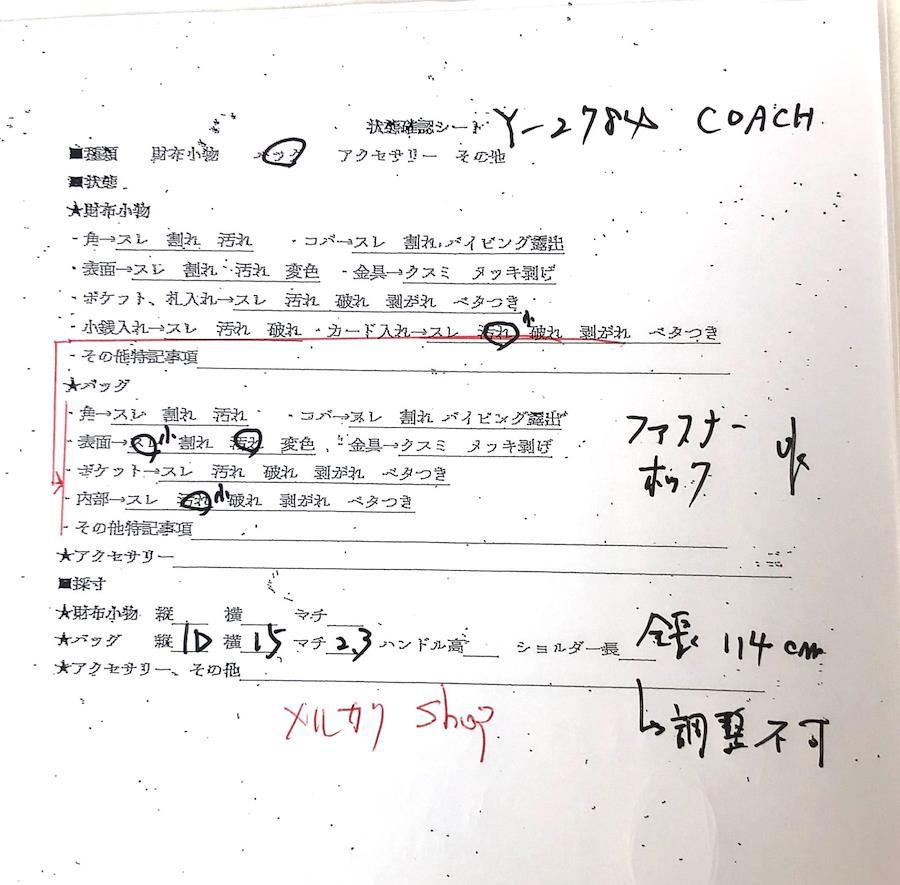 状態確認シート Y-2784 COACH
■種類 財布小物 バッグ アクセサリー その他
■状態
★財布小物
・角→スレ 割れ 汚れ ・コバ→スレ 割れ パイピング露出
・表面→スレ 割れ 汚れ 変色 ・金具→クスミ メッキ剥げ
・ポケット、札入れ→スレ 汚れ 破れ 剥がれ ベタつき
・小銭入れ→スレ 汚れ 破れ ・カード入れ→スレ 汚れ 小 破れ 剥がれ ベタつき
・その他特記事項
★バッグ
・角→スレ 割れ 汚れ ・コバ→スレ 割れ パイピング露出
・表面→スレ 小 割れ 汚れ 変色 ・金具→クスミ メッキ剥げ
ファスナー
・ポケット→スレ 汚れ 破れ 剥がれ ベタつき
ホック
・内部→スレ 汚れ 小 破れ 剥がれ ベタつき
・その他特記事項
★アクセサリー
■採寸
★財布小物 縦 横 マチ
★バッグ 縦 10 横 15 マチ 2.3 ハンドル高 ショルダー長 全長 114cm
★アクセサリー、その他
↳調整不可
メルカリ Shop